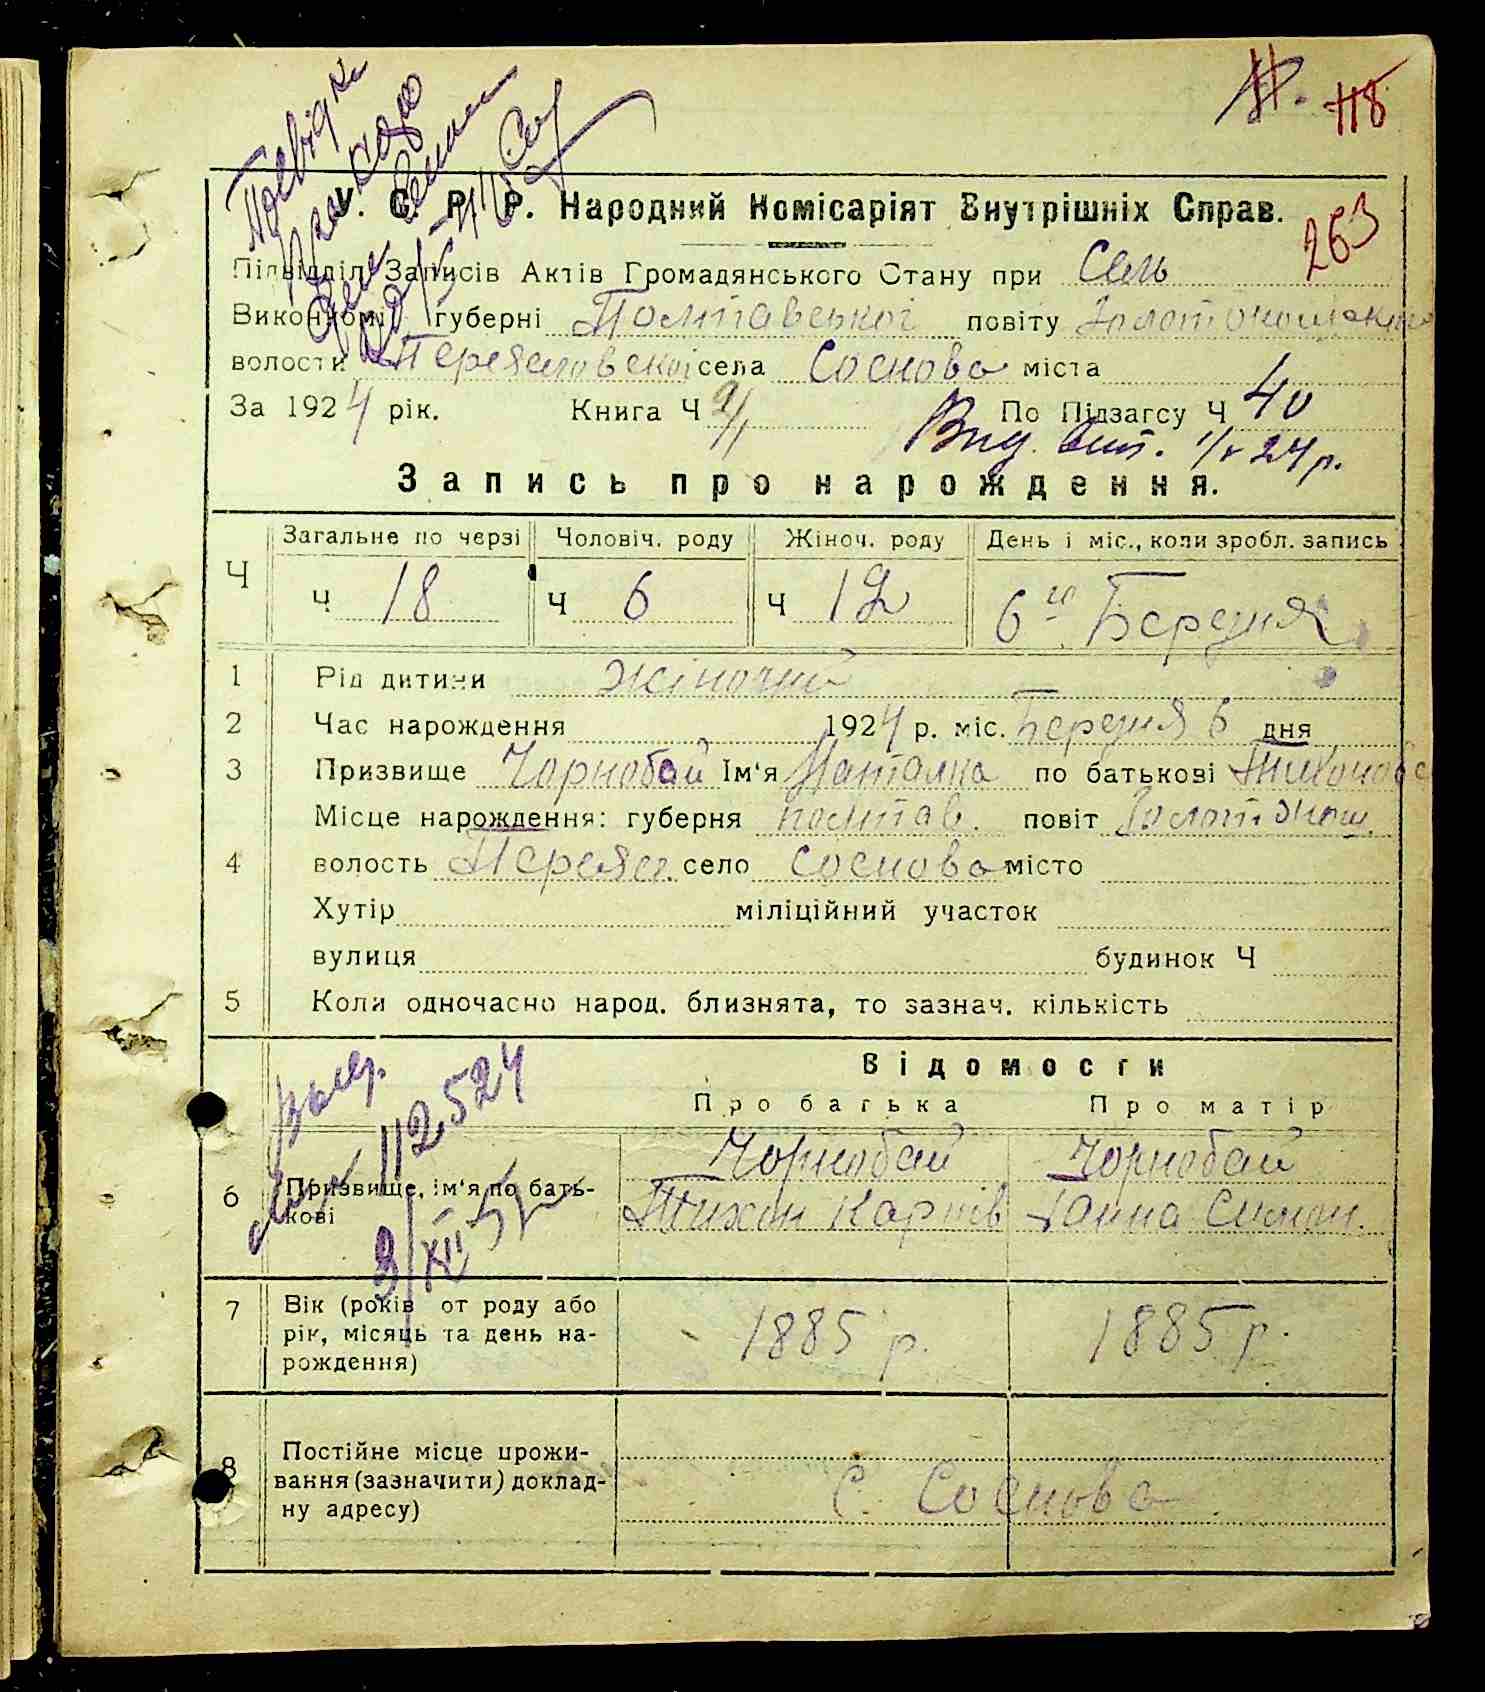 118
263
У. С. Р. Р. Народний Комісаріят Внутрішніх Справ.
Підвідділ Записів Актів Громадянського Стану при Сель
Виконкомі губерні Полтавської повіту Золотоношського
волости Переяславської села Соснова міста
За 1924 рік. Книга Ч По Підзагсу Ч 40
Вид. вит. 24 р.
Запись про нарождення.
Загальне по черзі Чоловіч. роду Жіноч. роду День і міс., коли зробл. запись
Ч Ч 18 Ч 6 Ч 12 6го Березня
1 Рід дитини жіночий
2 Час нарождення 1924 р. міс. Березня 6 дня
3 Призвище Чорнобай Ім'я Наталка по батькові Тихонова
Місце нарождення: губерня полтав. повіт Золотонош.
4 волость Переяс. село Соснова місто
Хутір міліційний участок
вулиця будинок Ч
5 Коли одночасно народ. близнята, то зазнач. кількість
Відомости
Про батька Про матір
112524
Чорнобай Чорнобай
6 Призвище, ім'я по бать-
кові Тихон Карпів Ганна Симон.
3/XII
7 Вік (років от роду або
рік, місяць та день на-
рождення) 1885 р. 1885 р.
8 Постійне місце прожи-
вання (зазначити) доклад-
ну адресу) С. Соснова